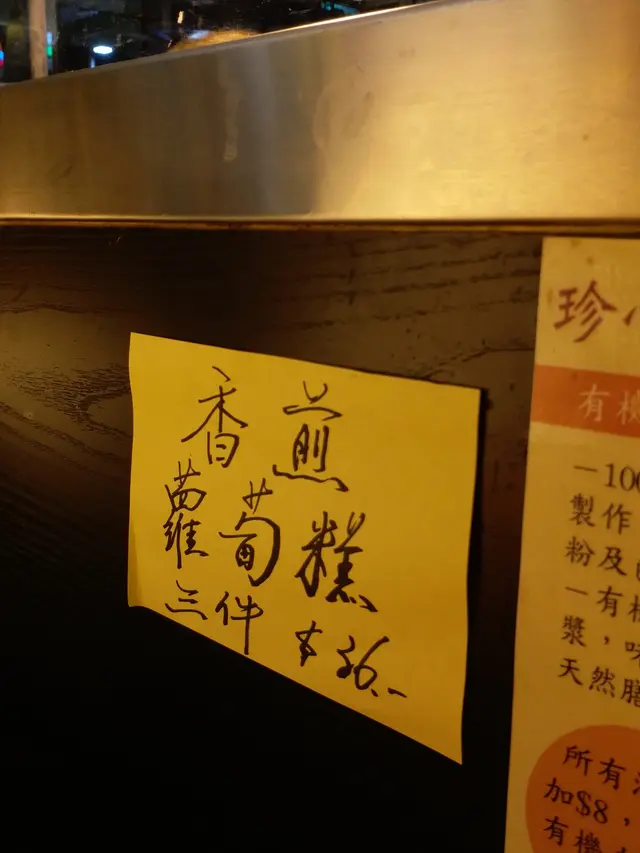 香煎
蘿蔔糕
三件 $36.-
珍
有機
－100
製作
粉及
－有機
漿，味
天然膳
所有
加$8，
有機